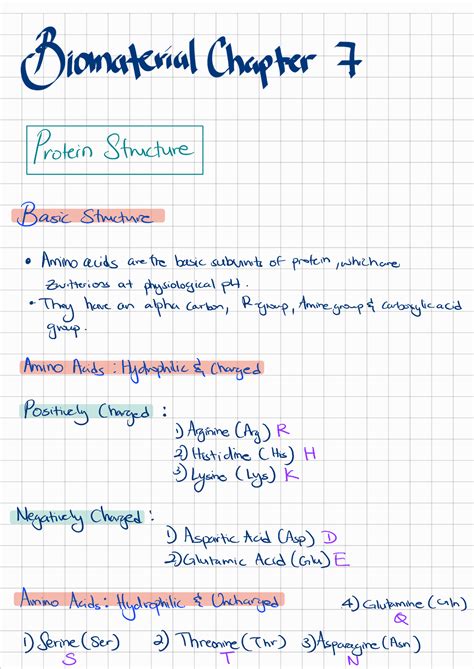 Biomaterial Chapter 7
Protein Structure
Basic Structure
• Amino acids are the basic subunits of protein, which are
Zwitterions at physiological pH.
• They have an alpha carbon, R group, Amine group & carboxylic acid
group.
Amino Acids : Hydrophilic & Charged
Positively Charged :
1) Arginine (Arg) R
2) Histidine (His) H
3) Lysine (Lys) K
Negatively Charged :
1) Aspartic Acid (Asp) D
2) Glutamic Acid (Glu) E
Amino Acids : Hydrophilic & Uncharged
4) Glutamine (Gln)
Q
1) Serine (Ser) 2) Threonine (Thr) 3) Asparagine (Asn)
S T N